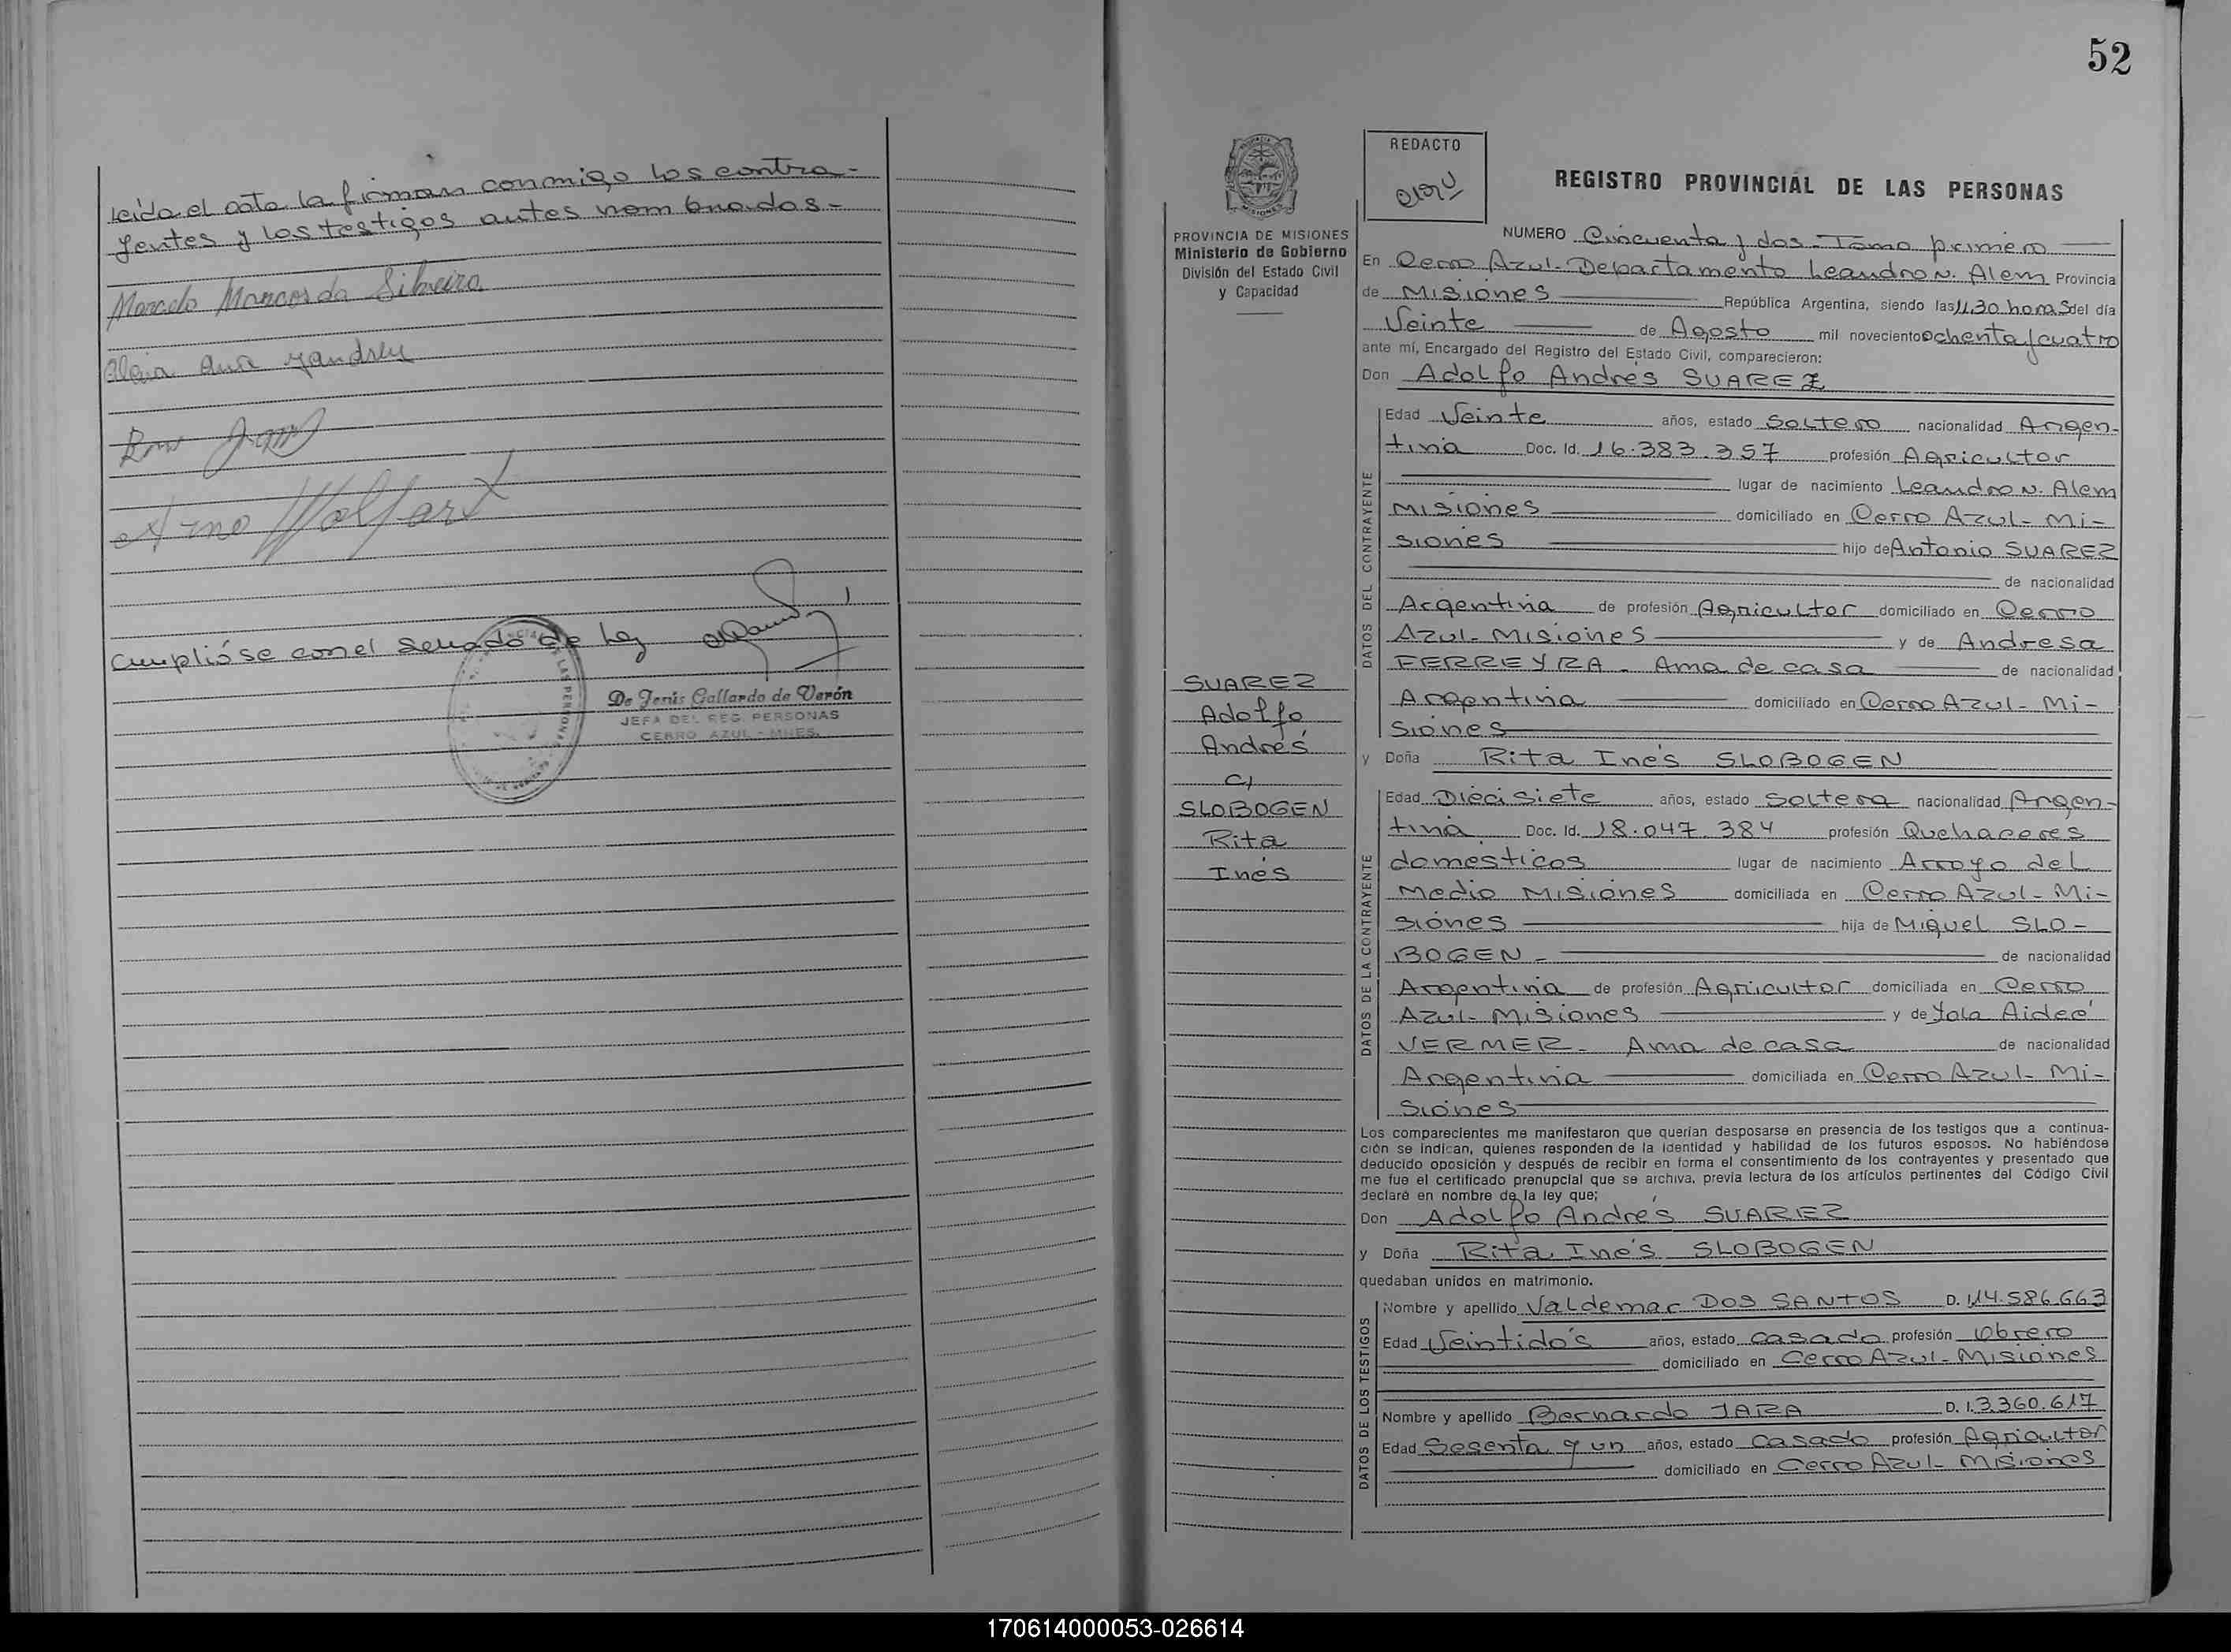 leída el acta la firman conmigo los contra-
yentes y los testigos antes nombrados-
Marcelo Marcos da Silveira
Arno Wolfart
Cumplióse con el sellado de ley
De Jesús Gallardo de Verón
JEFA DEL REG. PERSONAS
CERRO AZUL - MNES.
52
PROVINCIA DE MISIONES
Ministerio de Gobierno
División del Estado Civil
y Capacidad
SUAREZ
Adolfo
Andrés
c/
SLOBOGEN
Rita
Inés
REDACTO
REGISTRO PROVINCIAL DE LAS PERSONAS
NUMERO Cincuenta y dos - Tomo primero
En Cerro Azul- Departamento Leandro N. Alem Provincia
de Misiones República Argentina, siendo las 11,30 horas del día
Veinte de Agosto mil novecientos ochenta y cuatro
ante mí, Encargado del Registro del Estado Civil, comparecieron:
Don Adolfo Andrés SUAREZ
DATOS DEL CONTRAYENTE
Edad Veinte años, estado Soltero nacionalidad Argen-
tina Doc. Id. 16.383.357 profesión Agricultor
lugar de nacimiento Leandro N. Alem
Misiones domiciliado en Cerro Azul- Mi-
siones hijo de Antonio SUAREZ
de nacionalidad
Argentina de profesión Agricultor domiciliado en Cerro
Azul- Misiones y de Andresa
FERREYRA - Ama de casa de nacionalidad
Argentina domiciliado en Cerro Azul- Mi-
siones
y Doña Rita Inés SLOBOGEN
DATOS DE LA CONTRAYENTE
Edad Diecisiete años, estado Soltera nacionalidad Argen-
tina Doc. Id. 18.047.384 profesión Quehaceres
domésticos lugar de nacimiento Arroyo del
Medio Misiones domiciliada en Cerro Azul- Mi-
siones hija de Miguel SLO-
BOGEN - de nacionalidad
Argentina de profesión Agricultor domiciliada en Cerro
Azul- Misiones y de Yola Aideé
VERMER - Ama de casa de nacionalidad
Argentina domiciliada en Cerro Azul- Mi-
siones
Los comparecientes me manifestaron que querían desposarse en presencia de los testigos que a continua-
ción se indican, quienes responden de la identidad y habilidad de los futuros esposos. No habiéndose
deducido oposición y después de recibir en forma el consentimiento de los contrayentes y presentado que
me fue el certificado prenupcial que se archiva, previa lectura de los artículos pertinentes del Código Civil
declaré en nombre de la ley que;
Don Adolfo Andrés SUAREZ
y Doña Rita Inés SLOBOGEN
quedaban unidos en matrimonio.
DATOS DE LOS TESTIGOS
Nombre y apellido Valdemar DOS SANTOS D. I. 14.586.663
Edad Veintidós años, estado casado profesión Obrero
domiciliado en Cerro Azul- Misiones
Nombre y apellido Bernardo JARA D. I. 3.360.617
Edad Sesenta y un años, estado Casado profesión Agricultor
domiciliado en Cerro Azul- Misiones
170614000053-026614